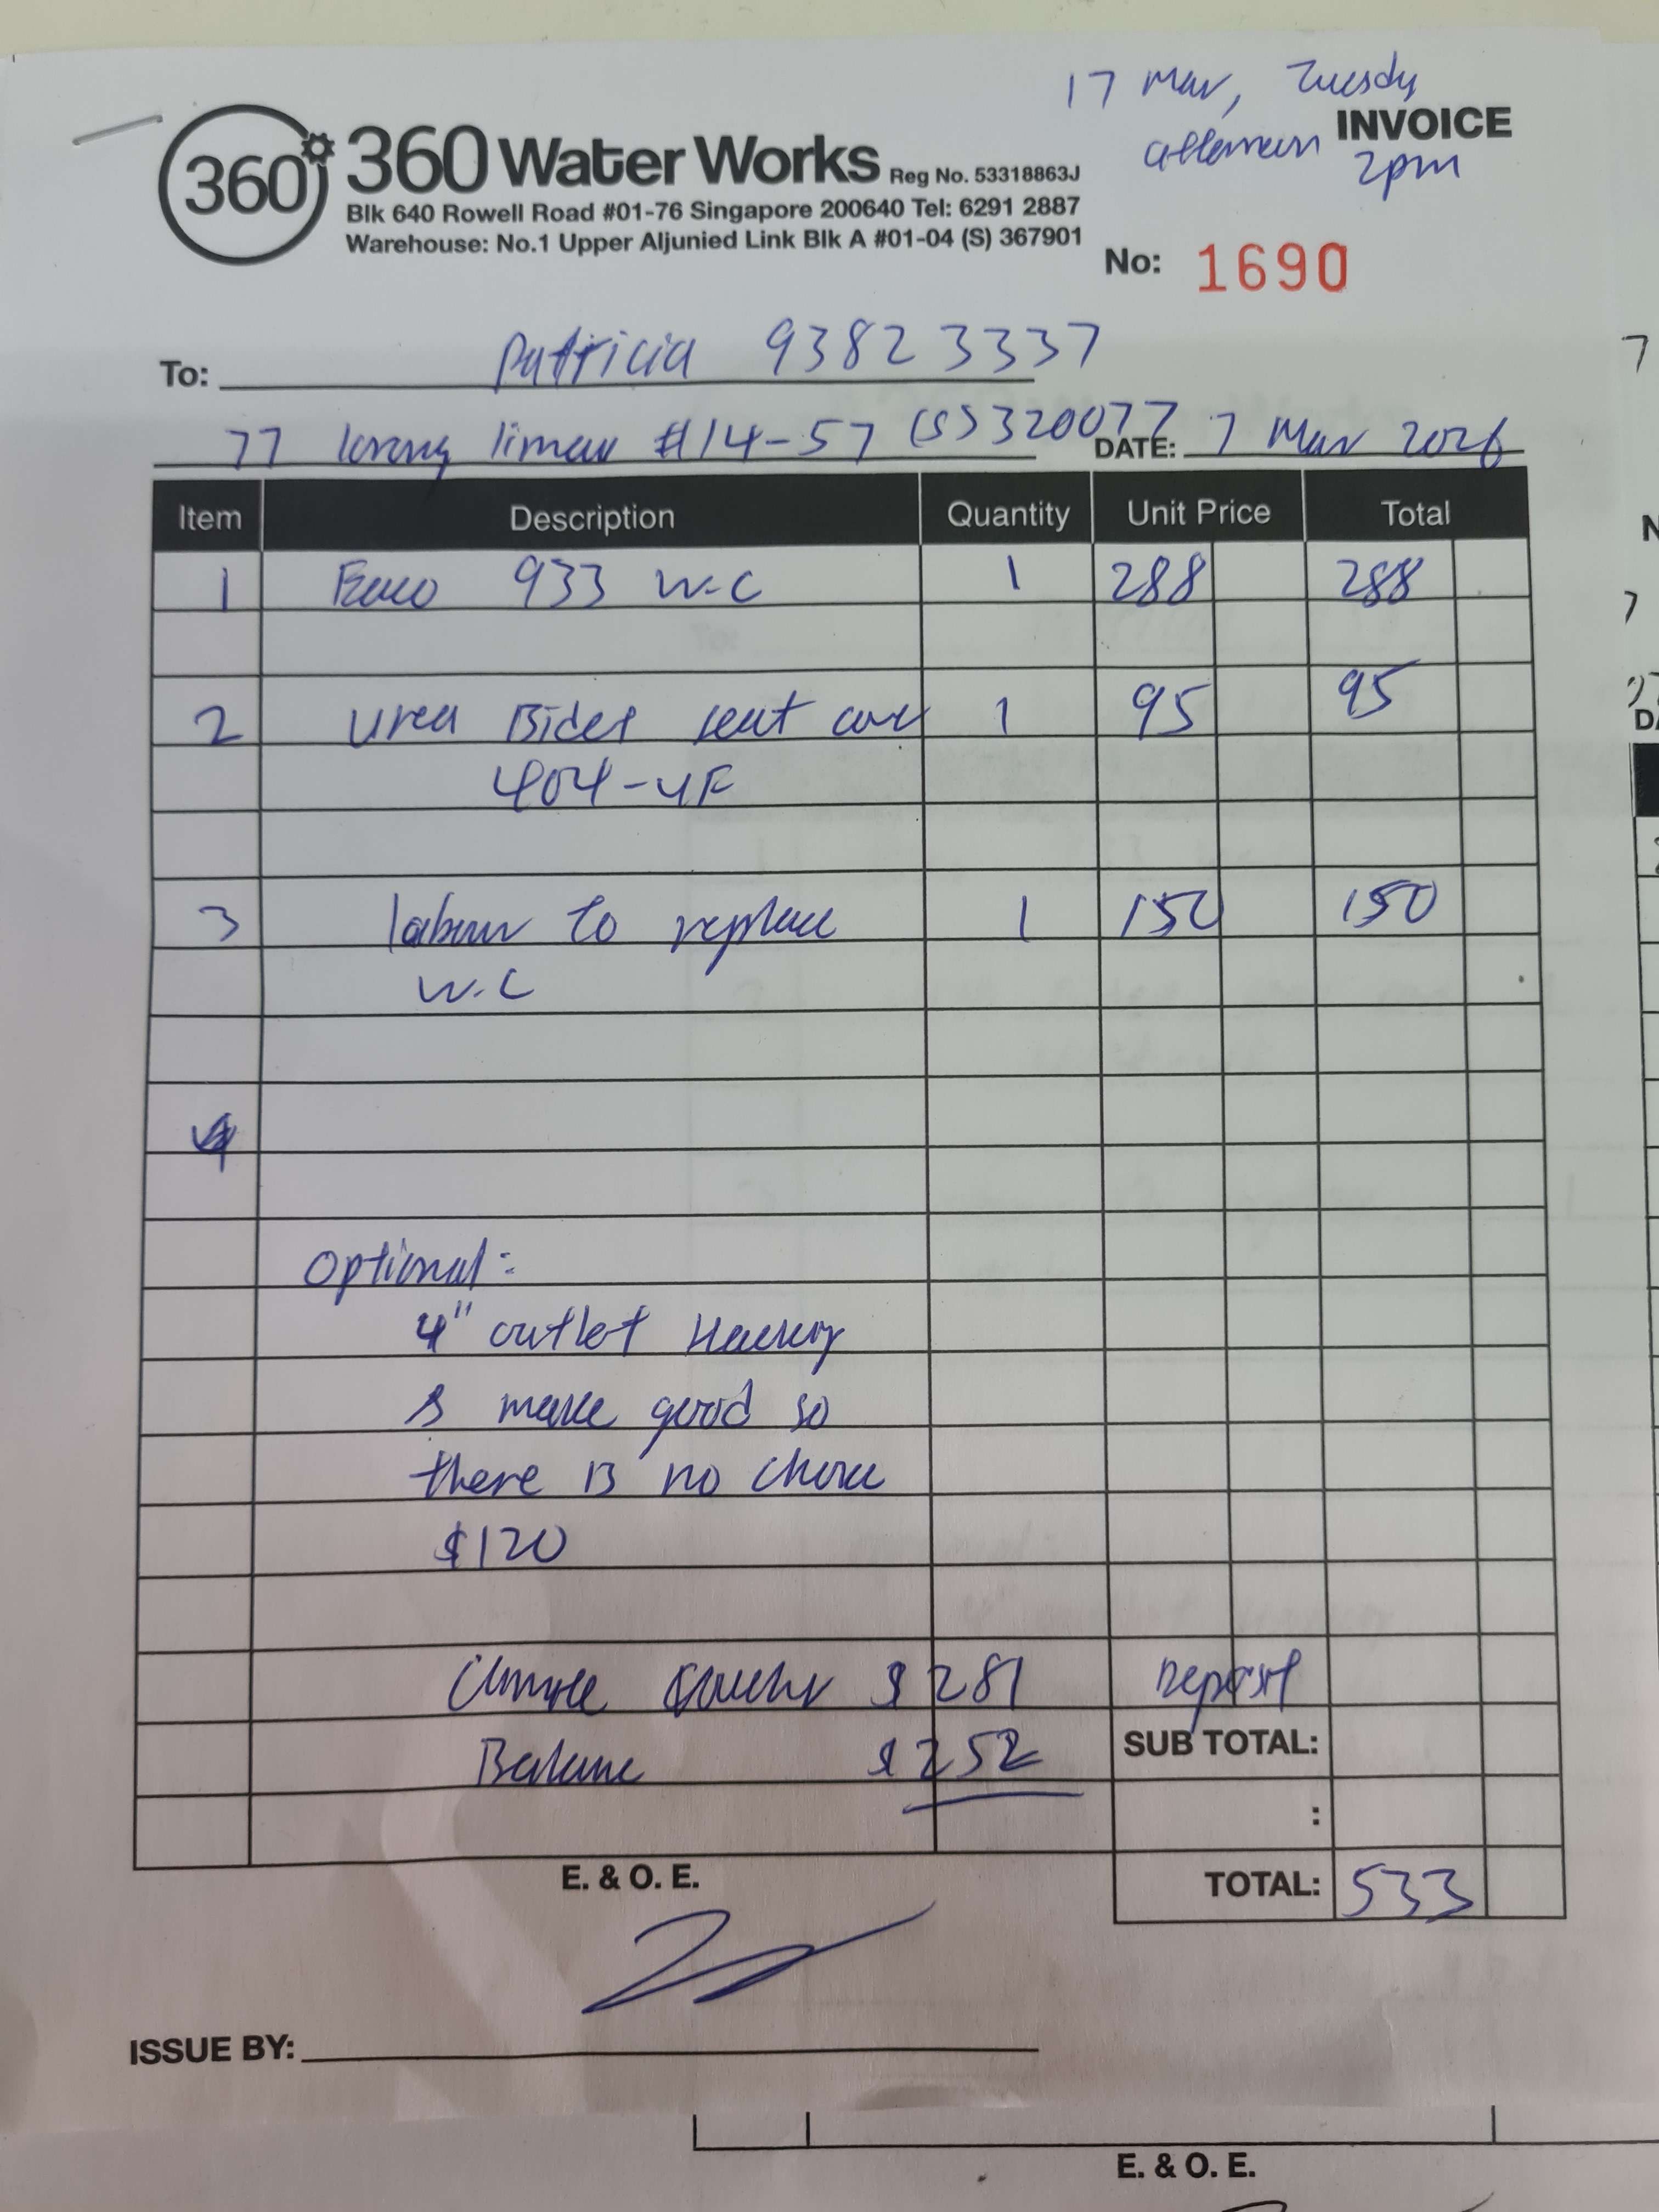 17 Mar, Tuesday
afternoon 2pm
INVOICE
360°
360 Water Works Reg No. 53318863J
Blk 640 Rowell Road #01-76 Singapore 200640 Tel: 6291 2887
Warehouse: No.1 Upper Aljunied Link Blk A #01-04 (S) 367901
No: 1690
To: Patricia 93823337
77 lorong limau #14-57 (S) 320077 DATE: 7 Mar 2026
Item Description Quantity Unit Price Total
1 933 W.C 1 288 288
2 Urea Bidet seat cover 1 95 95
404-UF
3 labour to replace 1 150 150
W.C
4
Optional:
4" outlet Hacking
& make good so
there is no
$120
Climate Voucher $281 Deposit
Balance $252 SUB TOTAL:
:
E. & O. E. TOTAL: 533
ISSUE BY:
E. & O. E.